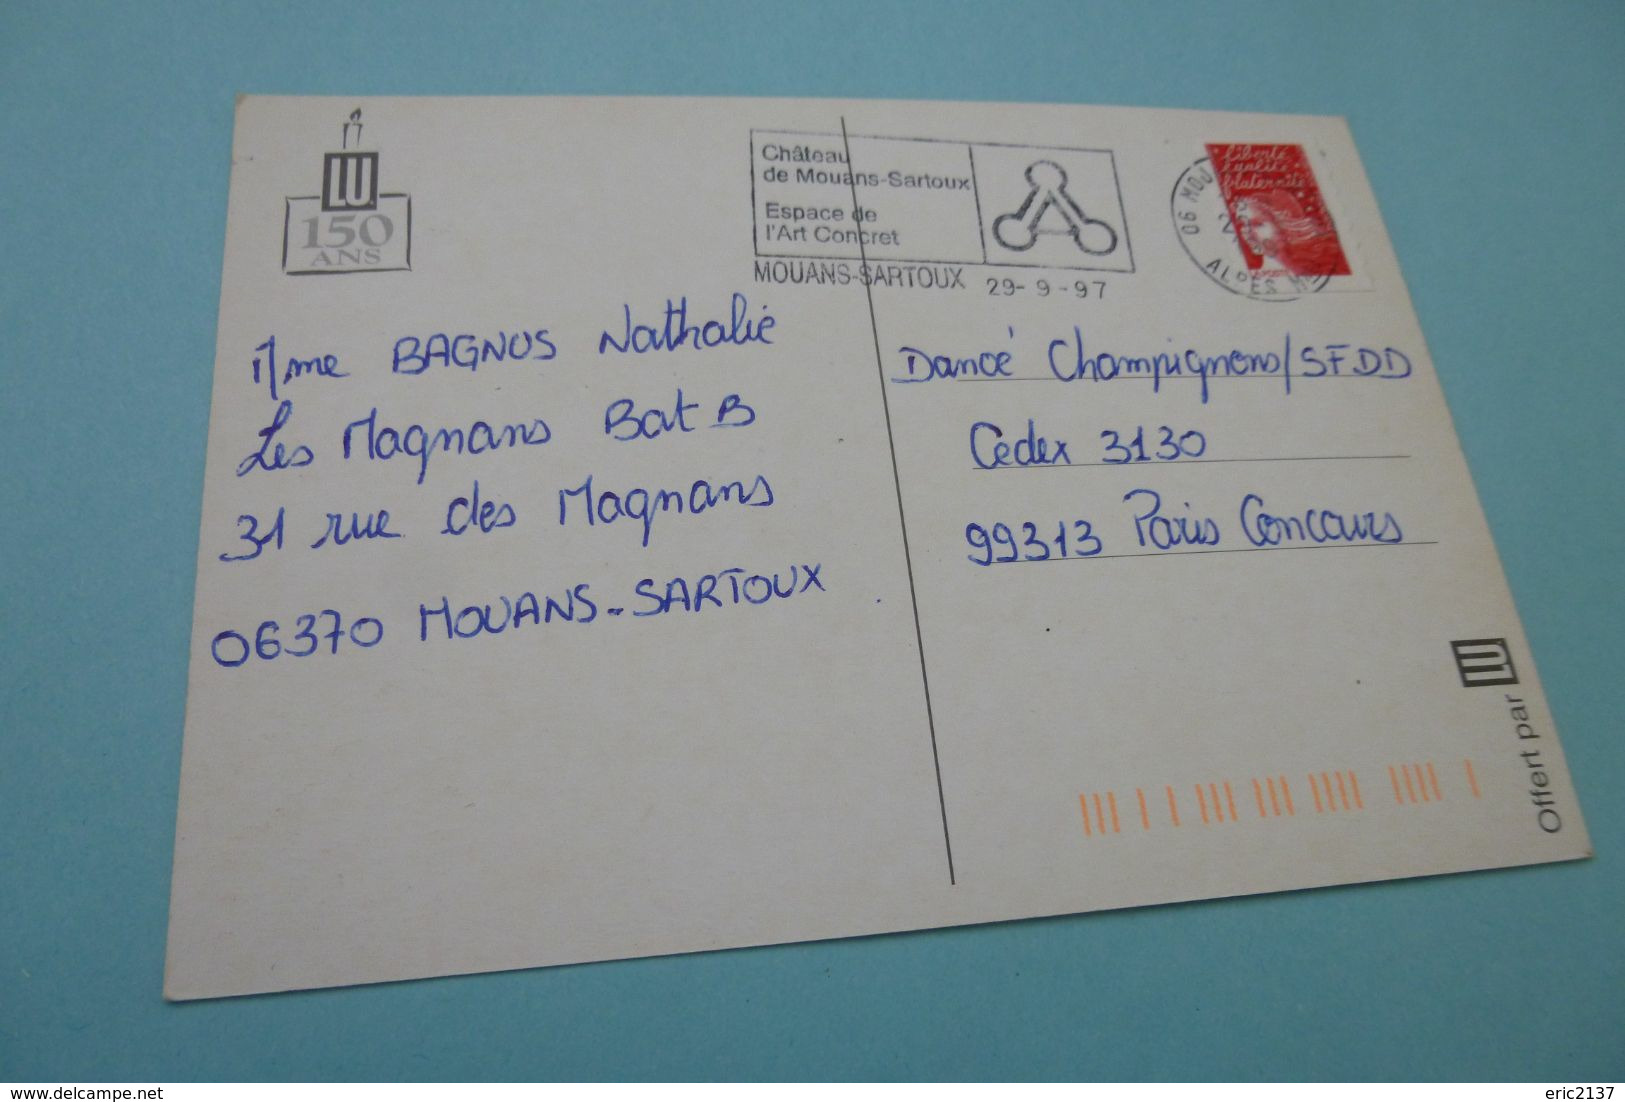 LU
150
ANS
Château
de Mouans-Sartoux
Espace de
l'Art Concret
MOUANS-SARTOUX 29-9-97
06 MOU
ALPES
liberté
égalité
fraternité
LA POSTE
Mme BAGNUS Nathalie
Les Magnans Bat B
31 rue des Magnans
06370 MOUANS-SARTOUX
Dancé Champignons/SFDD
Cedex 3130
99313 Paris Concours
Offert par LU
www.delcampe.net
eric2137